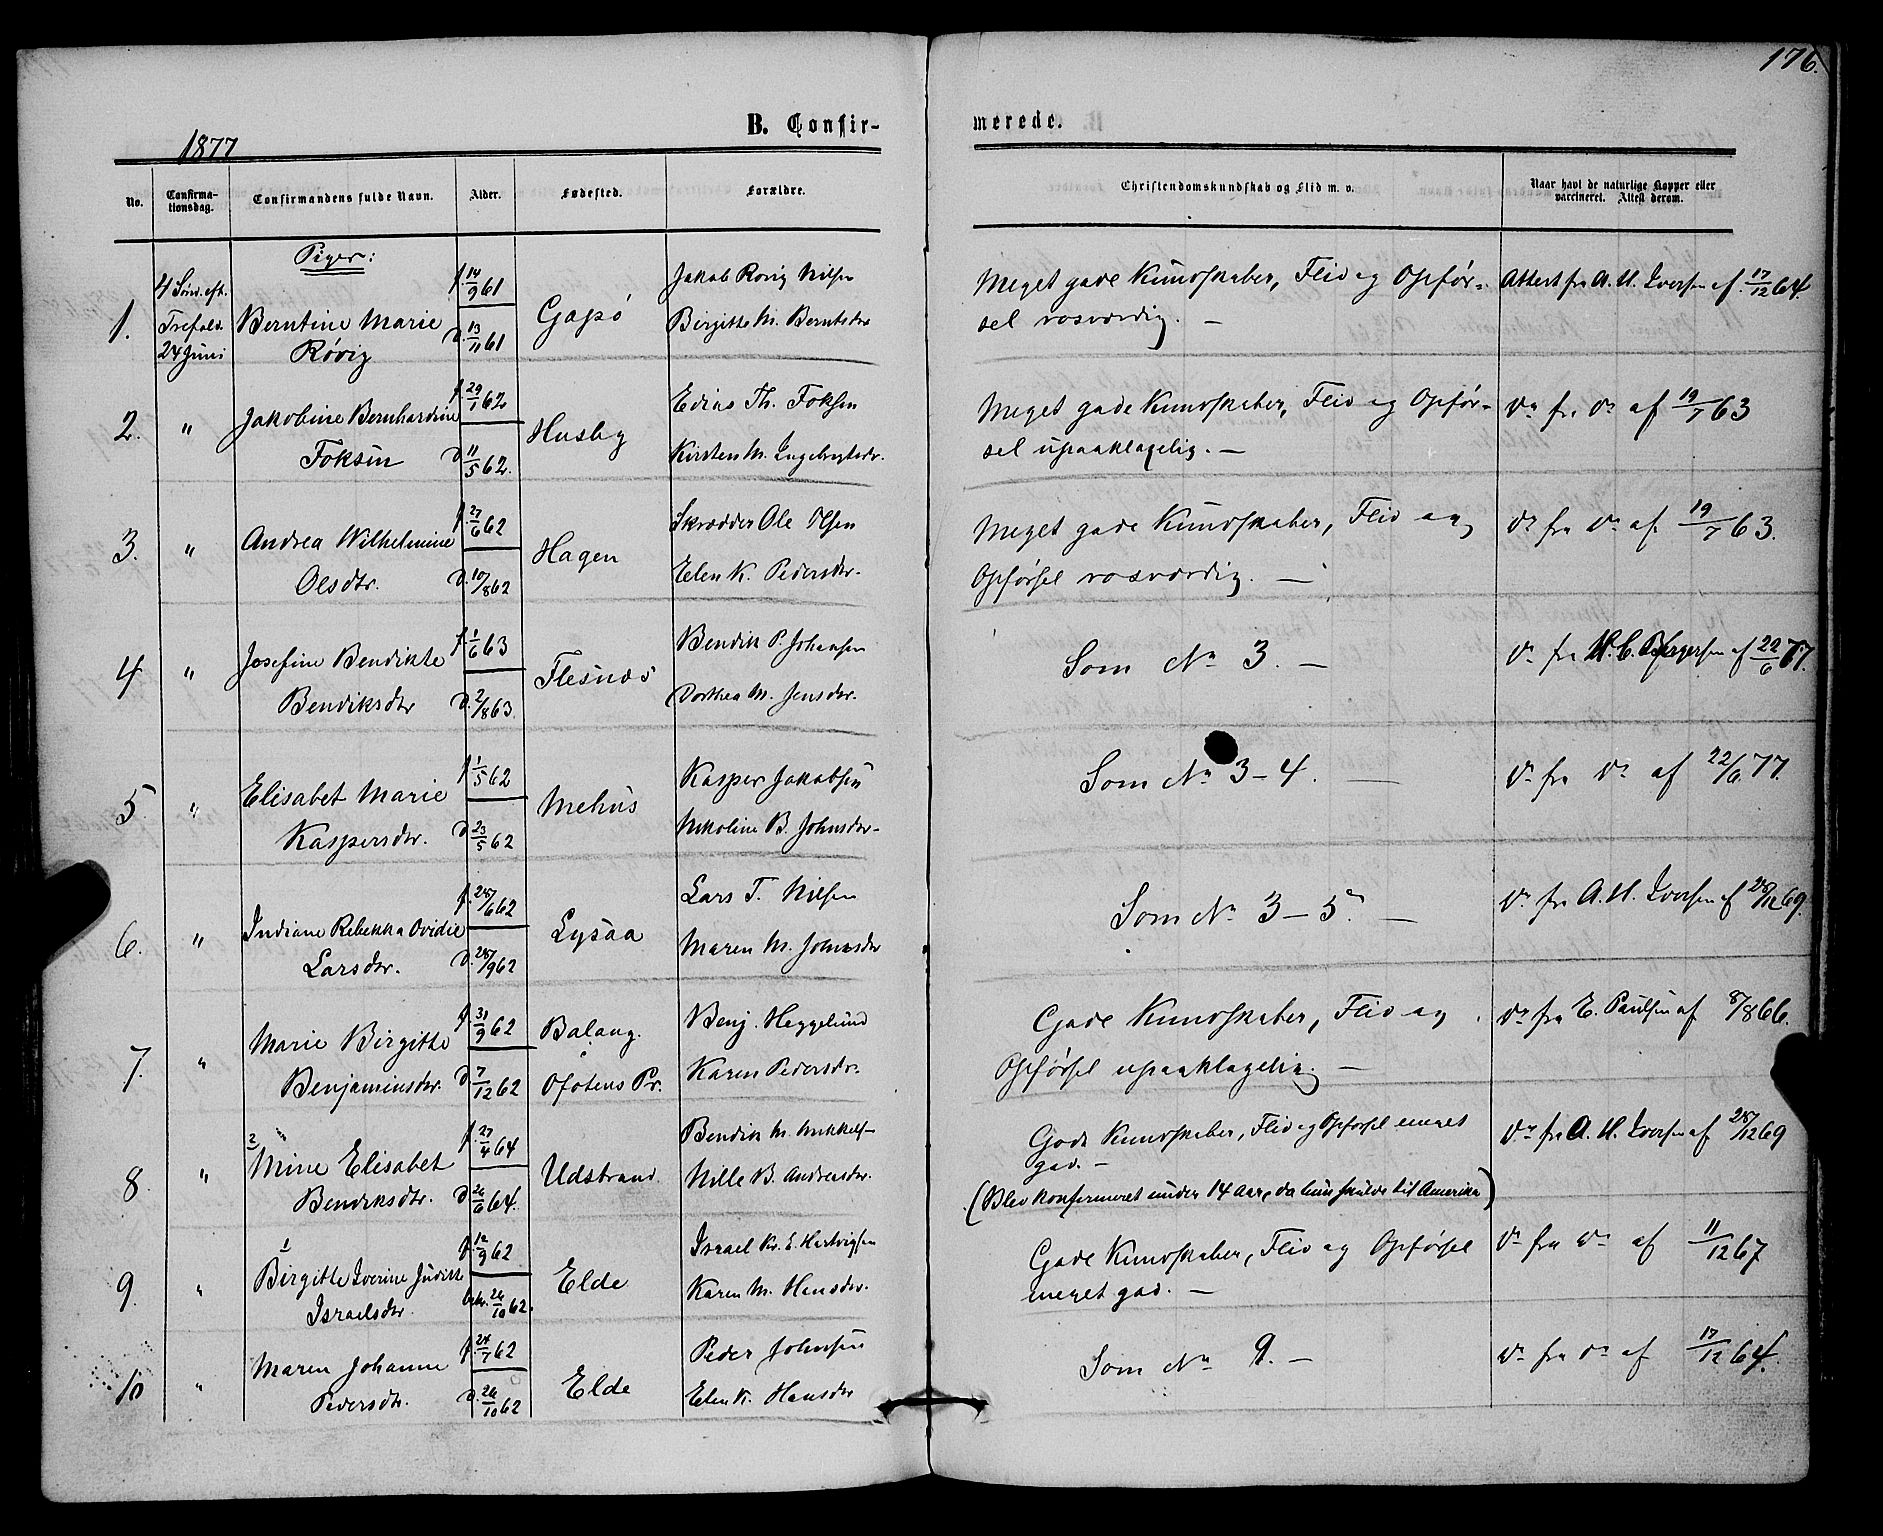 176.
B. Confir-
merede.
1877
No.
Confirma-
tionsdag.
Confirmandens fulde Navn.
Alder.
Fødested.
Forældre.
Christendomskundskab og Flid m. v.
Naar havt de naturlige Kopper eller
vaccineret. Attest derom.
Piger:
1.
4 Sønd. eft.
Trefold.
24 Juni
Berntine Marie
Røvig
f. 14/9 61
D. 13/11 61
Gapø
Jakob Røvig Nilsen
Birgitte M. Berntsdr
Meget gode Kundskaber, Flid og Opfør-
sel rosværdig. —
Attest fra A. U. Iversen af 17/12 64.
2.
"
Jakobine Bernhardine
Foksen
f. 29/1 62
D. 11/5 62.
Husby
Edias Th. Foksen
Kirsten M. Ingebrigtsdr.
Meget gode Kundskaber, Flid og Opfør-
sel upaaklagelig. —
Do fra Do af 19/7 63
3.
"
Andrea Wilhelmine
Olsdtr.
f. 27/6 62
D. 10/8 62
Hagen
Skrædder Ole Olsen
Elen K. Pedersdr.
Meget gode Kundskaber, Flid og
Opførsel rosværdig. —
Do fra Do af 19/7 63.
4
"
Josefine Bendikte
Bendiksdtr
f. 1/6 63
D. 2/8 63.
Flesnæs
Bendik P. Johansen
Dorthea M. Jensdr.
Som No 3. —
Do fra af 22/6 77.
5.
"
Elisabet Marie
Kaspersdtr.
f. 1/5 62
D. 23/5 62
Mehus
Kasper Jakobsen
Nikoline B. Johnsdr.
Som No 3-4. —
Do fra Do af 22/6. 77.
6.
"
Indiane Rebekka Ovidie
Larsdtr.
f. 28/6 62
D. 28/9 62
Lysaa
Lars T. Nilsen
Maren M. Johnsdr
Som No 3-5. —
Do fra A. U. Iversen af 28/12 69.
7.
"
Marie Birgitte
Benjaminsdtr.
f. 31/9 62
D. 7/12 62
Balang.
Ofotens Pr.
Benj. Heggelund
Karen Pedersdr.
Gode Kundskaber, Flid og
Opførsel upaaklagelig. —
Do fra E. Paulsen af 8/8 66.
8.
"
2
Mine Elisabet
Bendiksdtr.
f. 27/4 64
D. 26/6 64.
Udstrand.
Bendik M. Mikkels-
Nille B. Andreasdr.
Gode Kundskaber, Flid og Opførsel meget
god. —
(Blev konfirmeret under 14 Aar, da hun skulde til Amerika)
Do fra A. U. Iversen af 28/12 69
9.
"
1
Birgitte Iverine Judithe
Israelsdtr.
f. 12/9 62
26/10 62.
Elde
Israel Kr. E. Hartvigsen
Karen M. Hansdr.
Gode Kundskaber, Flid og Opførsel
meget god. —
Do fra Do af 11/12 67
10
"
Maren Johanne
Pedersdtr.
f. 24/7 62
D. 26/10 62
Elde
Peder Johnsen
Elen K. Hansdr
Som No 9. —
Do fra Do af 17/12 64.